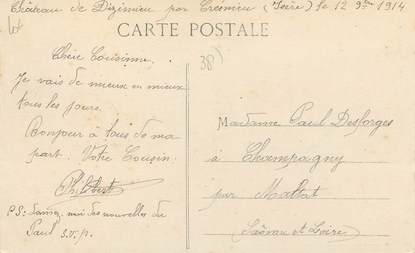 Château de Dizimieu par Crémieu (Isère) le 12 9bre 1914
CARTE POSTALE
38
Chère Cousine.
Je vais de mieux en mieux
tous les jours.
Bonjour à tous de ma
part. Votre Cousin.
Madame Paul Desforges
à Champagny
par Maltat
Saône et Loire
P.S: Donnez moi des nouvelles de
Paul s.v.p.